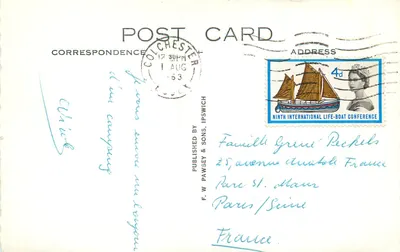 POST CARD
CORRESPONDENCE
ADDRESS
COLCHESTER
12 PM
1 AUG
63
4d
NINTH INTERNATIONAL LIFE-BOAT CONFERENCE
PUBLISHED BY
F. W. PAWSEY & SONS, IPSWICH
Je vous envoie un bonjour
d'un camping
Famille
25, avenue Anatole France
Parc St. Maur
Paris/Seine
France